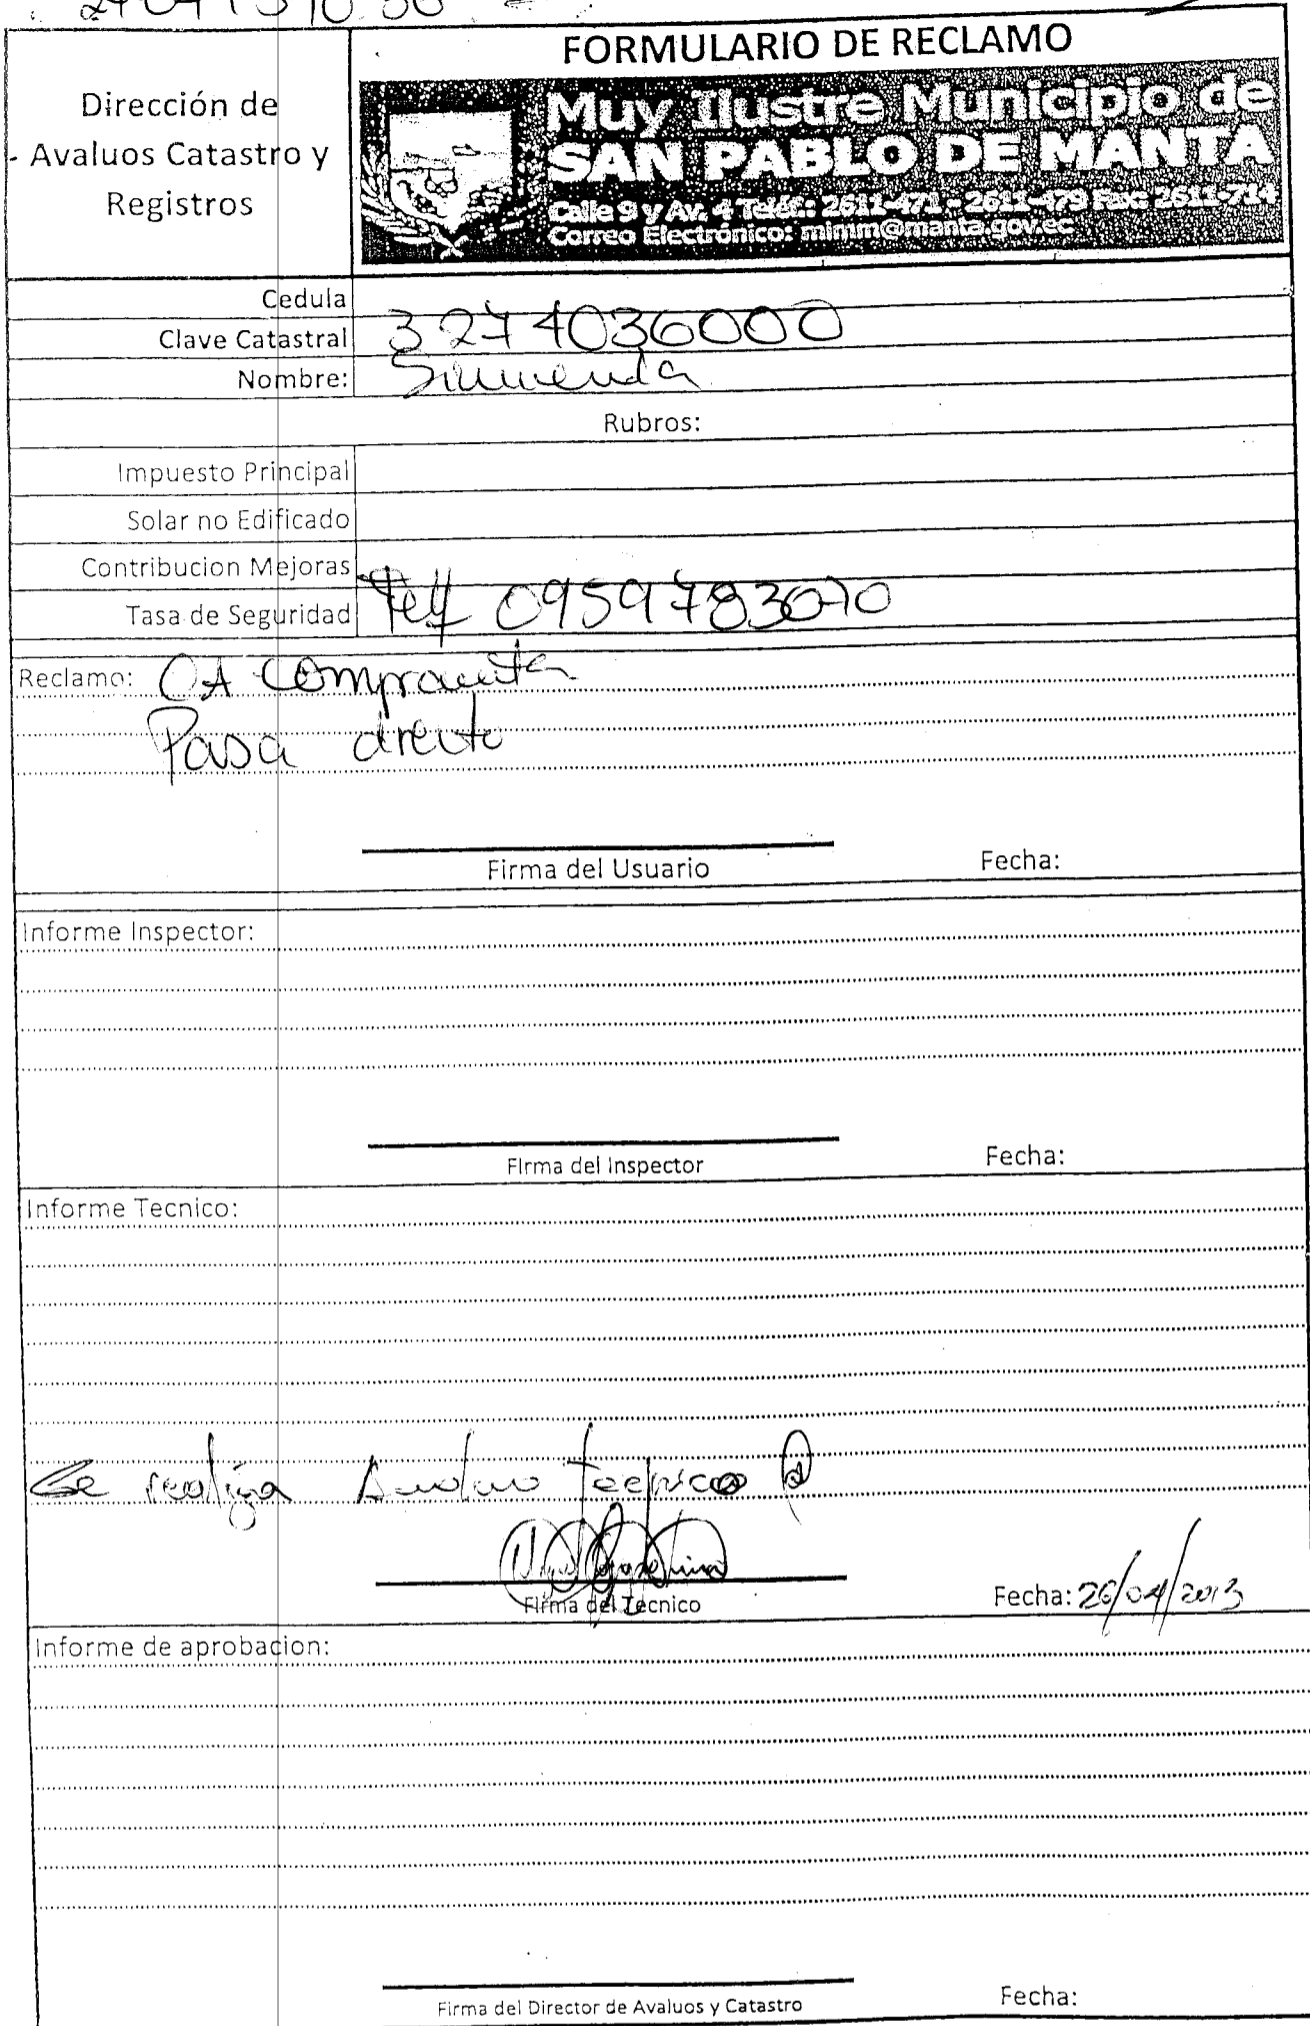 FORMULARIO DE RECLAMO
Dirección de
Avaluos Catastro y
Registros
Muy Ilustre Municipio de
SAN PABLO DE MANTA
Calle 9 y Av. 4 Teléf: 2611-471 - 2611-479 Fax: 2611-714
Correo Electrónico: mimm@manta.gov.ec
Cedula
Clave Catastral 3274036000
Nombre:
Rubros:
Impuesto Principal
Solar no Edificado
Contribucion Mejoras
Tasa de Seguridad Telf 0959783070
Reclamo: CA Compraventa
Pasa directo
Firma del Usuario Fecha:
Informe Inspector:
Firma del Inspector Fecha:
Informe Tecnico:
Se realiza tecnico
Firma del Tecnico Fecha: 26/04/2013
Informe de aprobacion:
Firma del Director de Avaluos y Catastro Fecha: